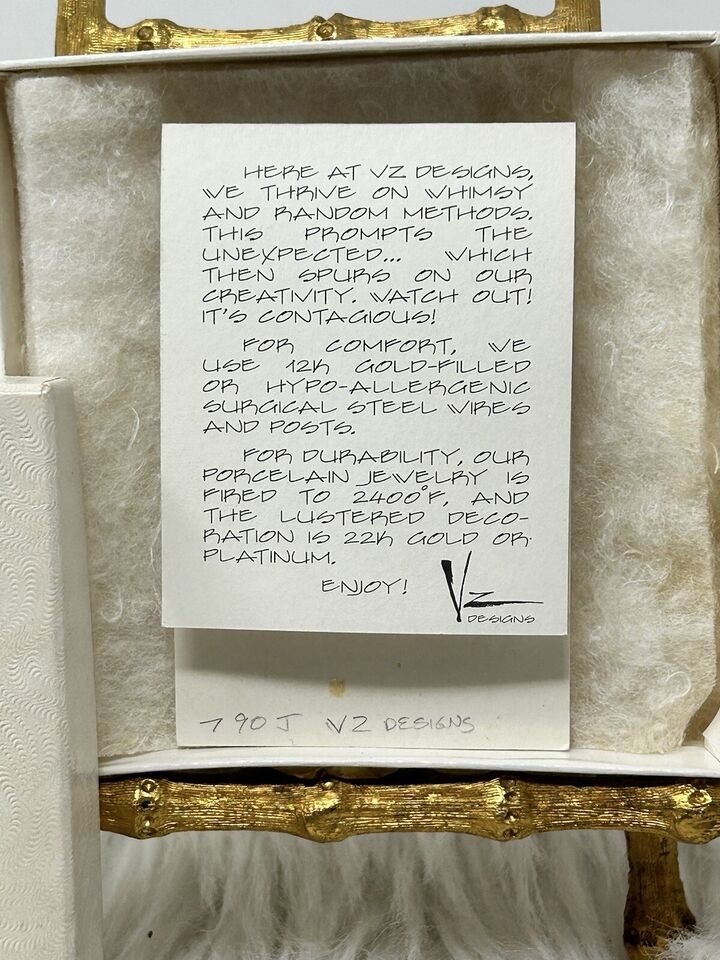 HERE AT VZ DESIGNS,
WE THRIVE ON WHIMSY
AND RANDOM METHODS.
THIS PROMPTS THE
UNEXPECTED... WHICH
THEN SPURS ON OUR
CREATIVITY. WATCH OUT!
IT'S CONTAGIOUS!
FOR COMFORT, WE
USE 12K GOLD-FILLED
OR HYPO-ALLERGENIC
SURGICAL STEEL WIRES
AND POSTS.
FOR DURABILITY, OUR
PORCELAIN JEWELRY IS
FIRED TO 2400°F, AND
THE LUSTERED DECO-
RATION IS 22K GOLD OR
PLATINUM.
ENJOY!
VZ
DESIGNS
790J VZ DESIGNS